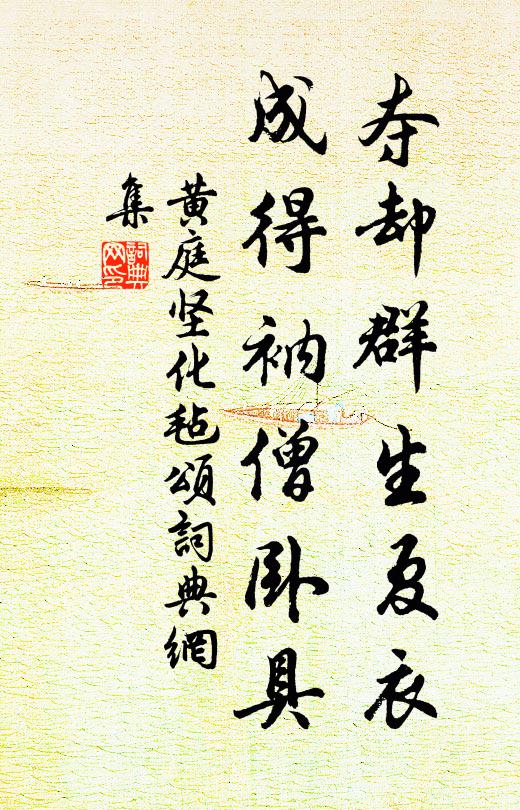 夺却群生夏衣
成得衲僧卧具
黄庭坚化毡頌詞典網
集
詞典网印